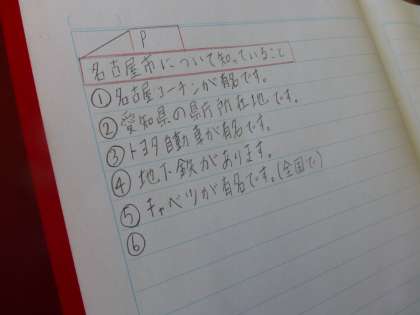 P
名古屋市について知っていること
①名古屋コーチンが有名です。
②愛知県の県庁所在地です。
③トヨタ自動車が有名です。
④地下鉄があります。
⑤キャベツが有名です。(全国で)
⑥